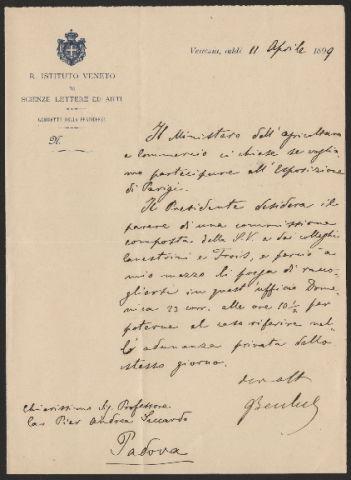 R. ISTITUTO VENETO
DI
SCIENZE LETTERE ED ARTI
GABINETTO DELLA PRESIDENZA
N.
Venezia, addì 11 Aprile 1899
Il Ministero dell'agricoltura
e Commercio ci chiese se voglia-
mo partecipare all'Esposizione
di Parigi.
Il Presidente desidera il
parere di una commissione
composta della S.V. e dai colleghi
Canestrini e Trois, e perciò a
mio mezzo li prega di racco-
gliersi in quest'ufficio Dome-
nica 23 corr. alle ore 10½ per
poterne al caso riferire nel-
l'adunanza privata dello
stesso giorno.
Chiarissimo Sig. Professore
Cav. Pier Andrea Saccardo
Padova